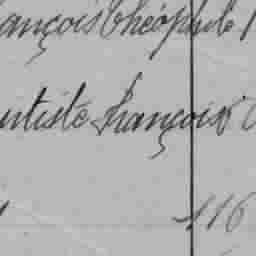 ançois théophile
utiste françois
116